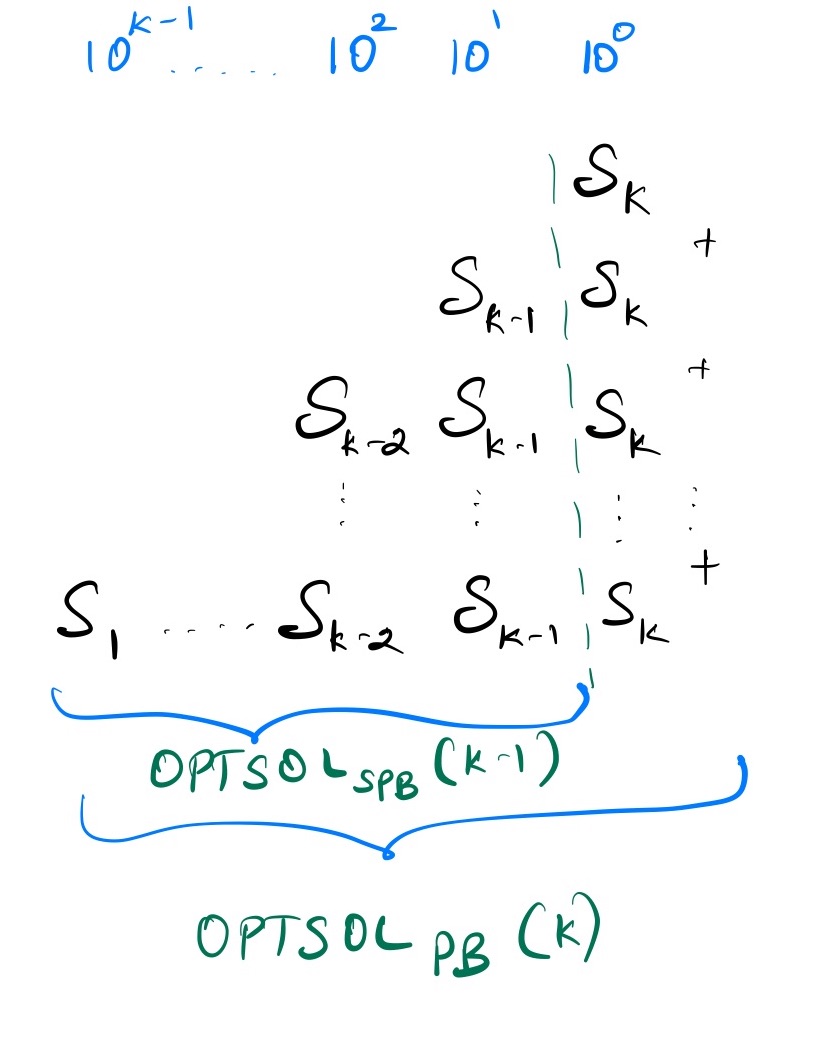 10^{k-1} ..... 10^2 10^1 10^0
S_k
+
S_{k-1} S_k
+
S_{k-2} S_{k-1} S_k
⋮ ⋮ ⋮ ⋮
+
S_1 ..... S_{k-2} S_{k-1} S_k
OPTSOL_{SPB} (k-1)
OPTSOL_{PB} (k)